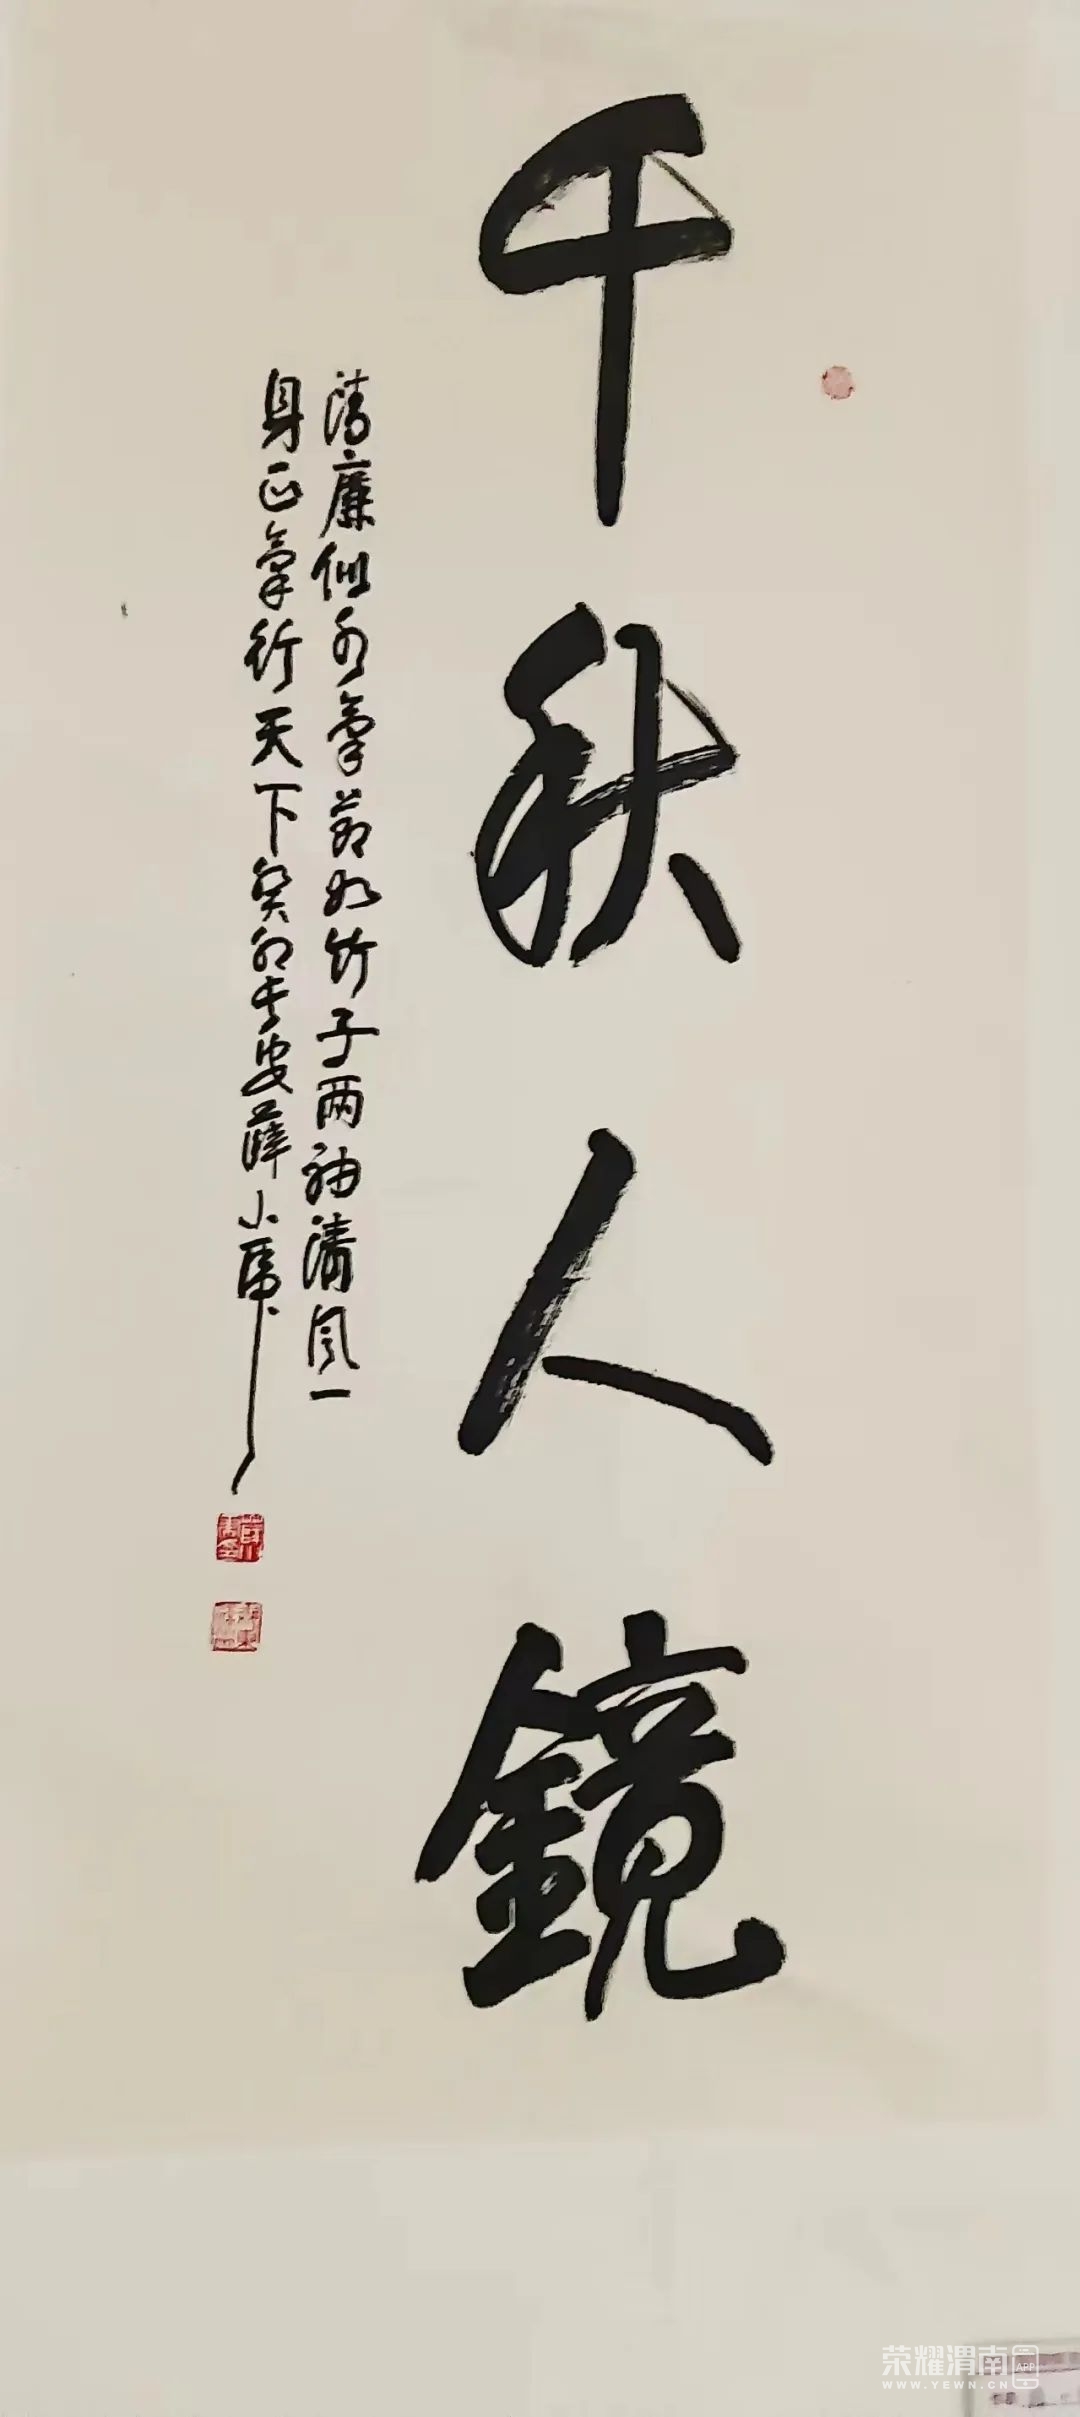 千秋人鏡
清廉似水氣節如竹子两袖清風一
身正氣行天下癸卯长安薛小虎
荣耀渭南 APP
WWW.YEWN.CN